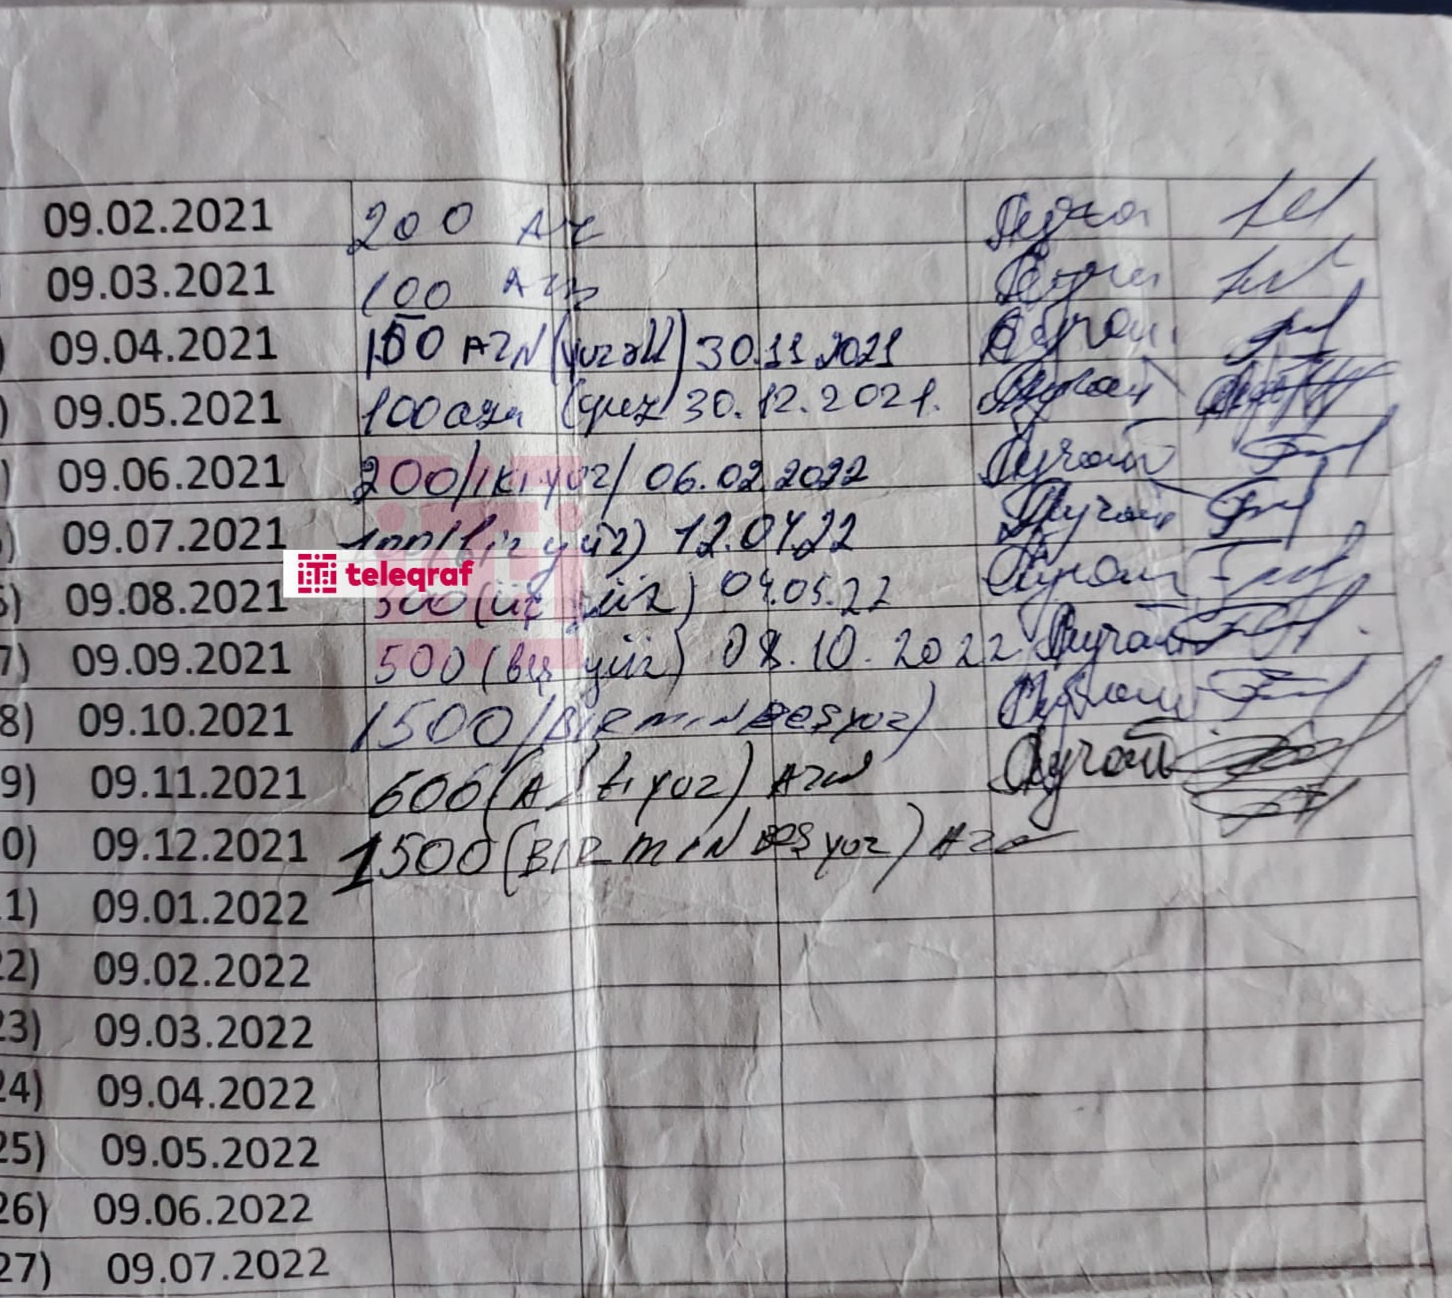 09.02.2021 200 AZ
09.03.2021 100 AZN
) 09.04.2021 150 AZN (yuz əlli) 30.11.2021
) 09.05.2021 100 azn (yuz) 30.12.2021.
) 09.06.2021 200 /iki yuz/ 06.02.2022
) 09.07.2021 100 (bir yüz) 12.04.22
teleqraf
6) 09.08.2021 300 (üç yüz) 04.05.22
7) 09.09.2021 500 (beş yüz) 08.10.2022
8) 09.10.2021 1500 (BIR MIN BEŞ YUZ)
9) 09.11.2021 600 (Altı yuz) AZN
0) 09.12.2021 1500 (BIR MIN BEŞ YUZ) AZN
1) 09.01.2022
2) 09.02.2022
23) 09.03.2022
24) 09.04.2022
25) 09.05.2022
26) 09.06.2022
27) 09.07.2022